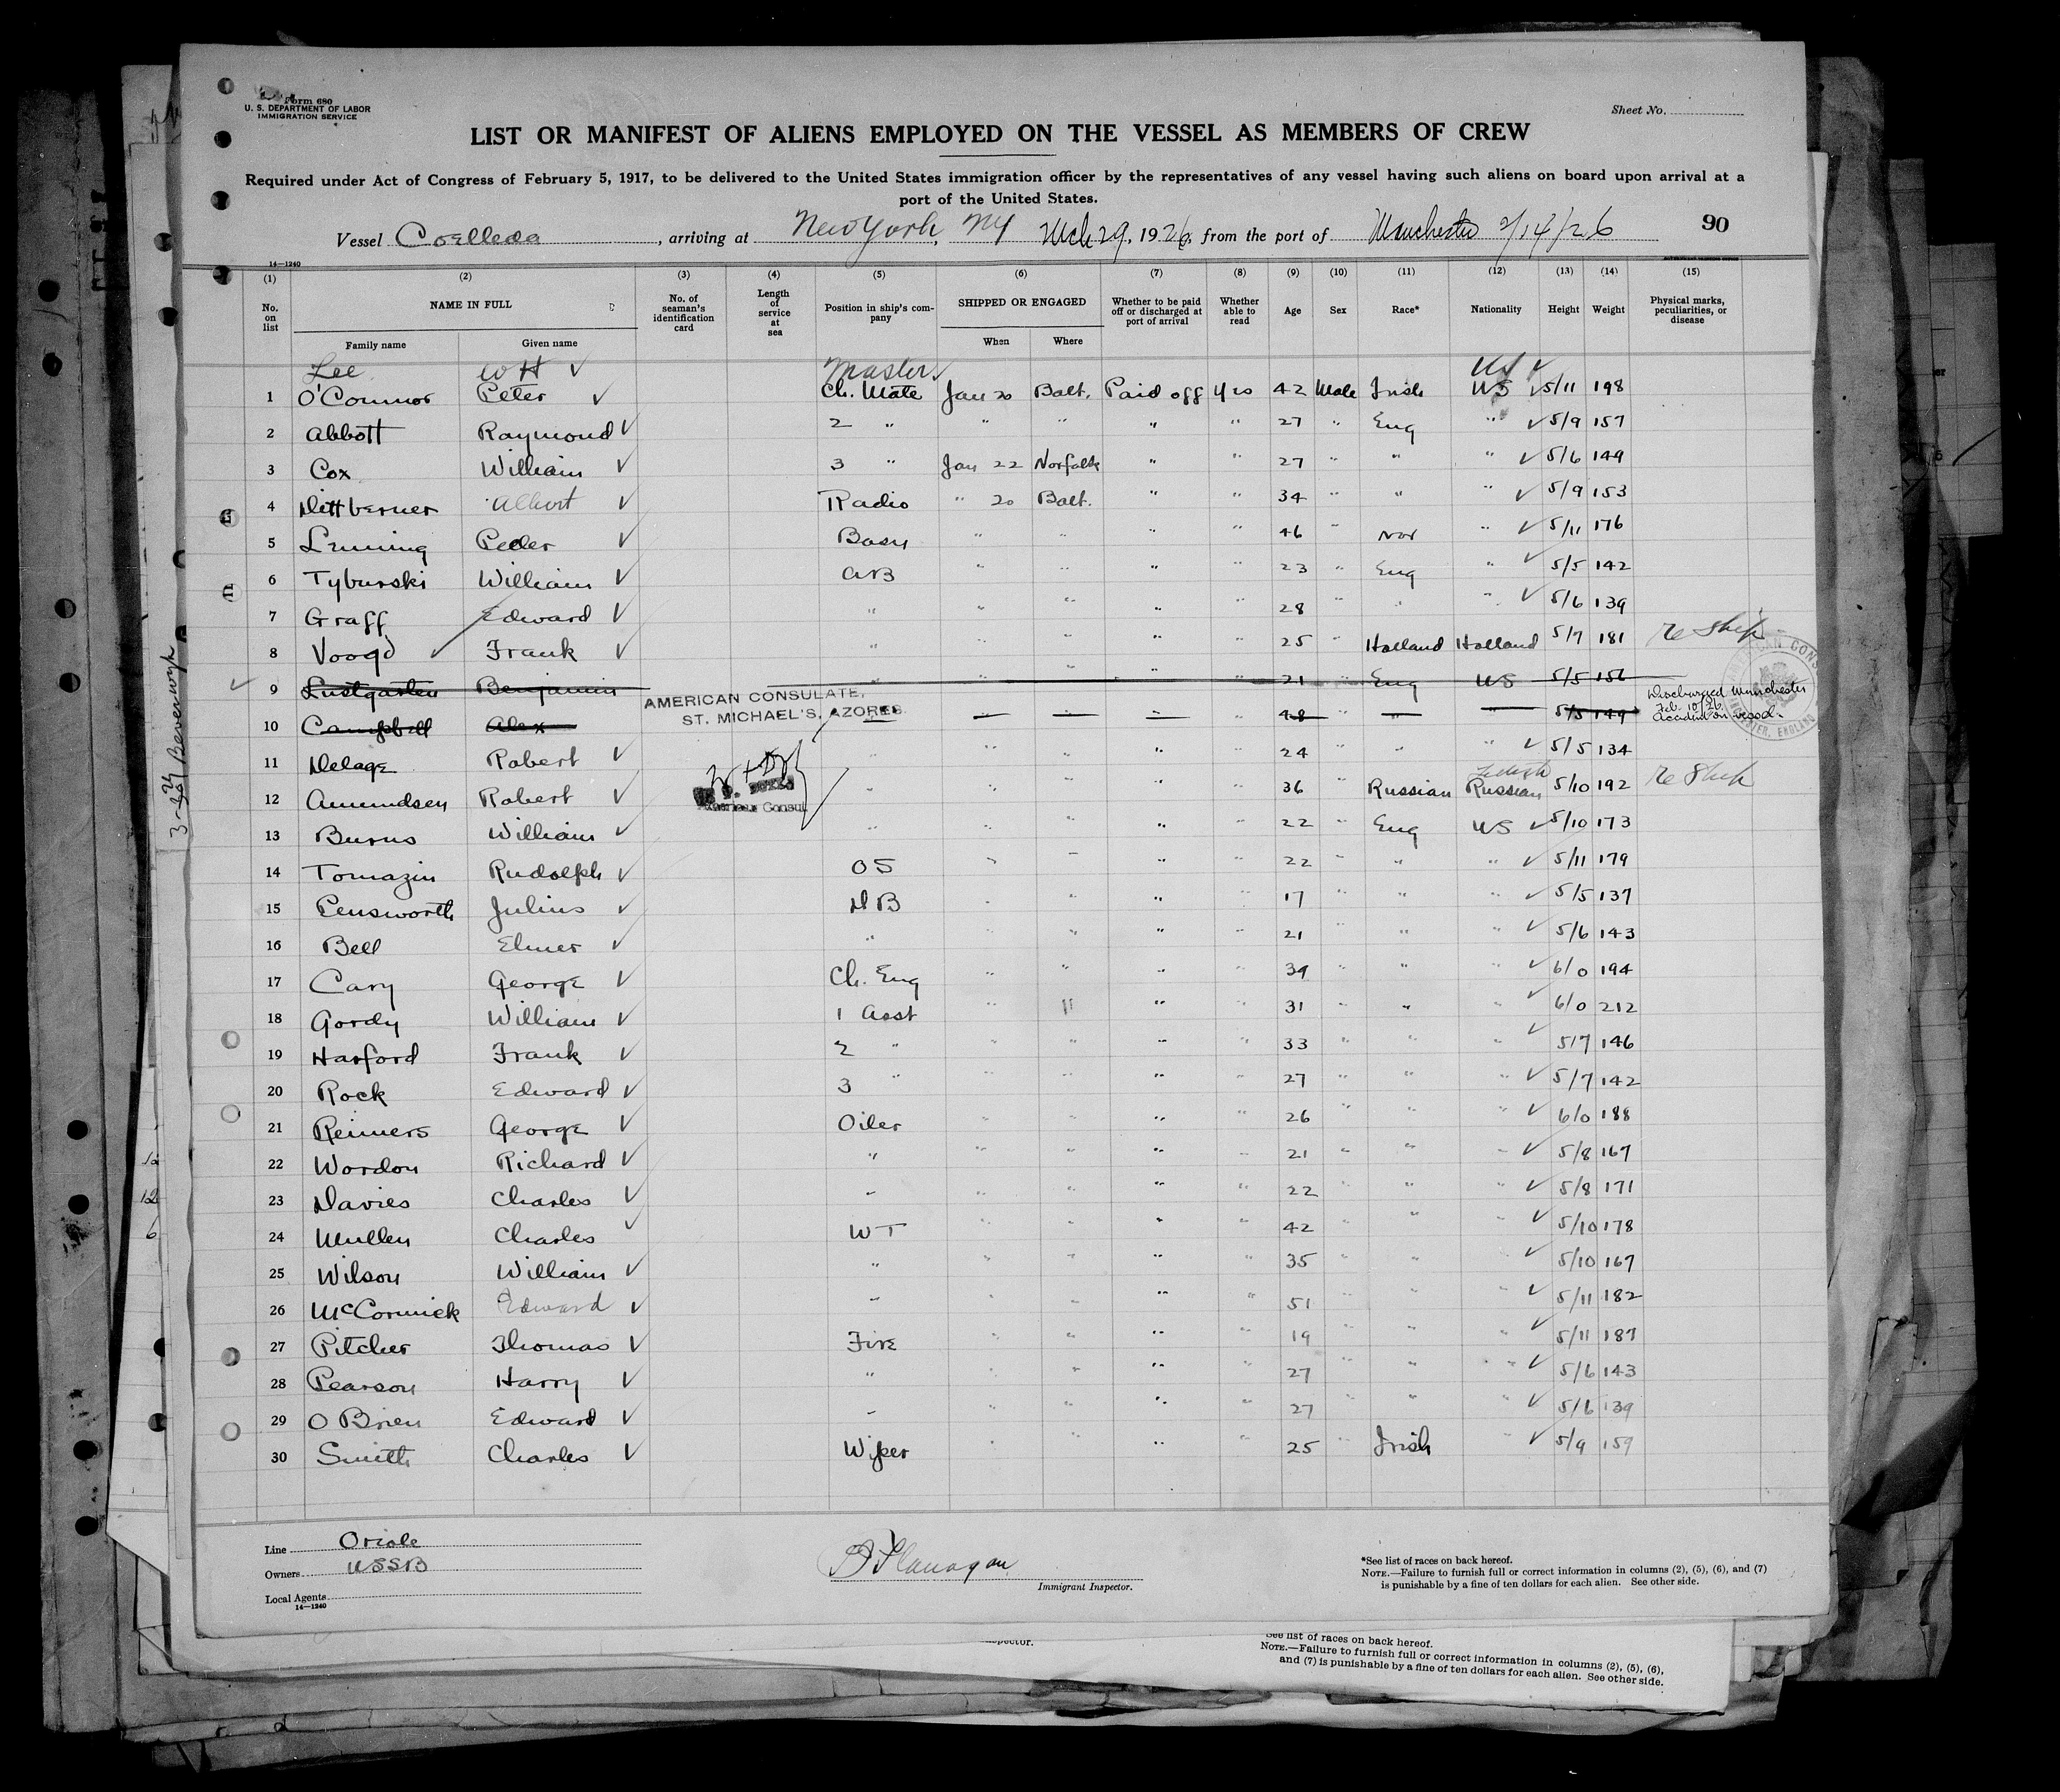 Form 680
U. S. DEPARTMENT OF LABOR
IMMIGRATION SERVICE
Sheet No.
LIST OR MANIFEST OF ALIENS EMPLOYED ON THE VESSEL AS MEMBERS OF CREW
Required under Act of Congress of February 5, 1917, to be delivered to the United States immigration officer by the representatives of any vessel having such aliens on board upon arrival at a
port of the United States.
Vessel Coelleda, arriving at New York, NY Mch 29, 1926, from the port of Manchester 2/14/26 90
14—1240
(1) (2) (3) (4) (5) (6) (7) (8) (9) (10) (11) (12) (13) (14) (15)
No. on list NAME IN FULL No. of seaman's identification card Length of service at sea Position in ship's company SHIPPED OR ENGAGED Whether to be paid off or discharged at port of arrival Whether able to read Age Sex Race* Nationality Height Weight Physical marks, peculiarities, or disease
Family name Given name When Where
Lee W H ✓ Master ✓ US ✓
1 O'Connor Peter ✓ Ch. Mate Jan 20 Balt. Paid off yes 42 Male Irish US ✓ 5/11 198
2 Abbott Raymond ✓ 2 " " " " " 27 " Eng " ✓ 5/9 157
3 Cox William ✓ 3 " Jan 22 Norfolk " " 27 " " " ✓ 5/6 149
4 Dittberner Albert ✓ Radio " 20 Balt. " " 34 " " " ✓ 5/9 153
5 Peder ✓ Bosn " " " " 46 " Nor " ✓ 5/11 176
6 Tyburski William ✓ AB " " " " 23 " Eng " ✓ 5/5 142
7 Graff Edward ✓ " " " " " 28 " " " ✓ 5/6 139
8 Voogd ✓ Frank ✓ " " " " 25 " Holland Holland 5/7 181 Re Ship
9 Lustgarten Benjamin 21 Eng US 5/5 156
AMERICAN CONSULATE,
ST. MICHAEL'S, AZORES.
10 Campbell Alex 48 " 5/5 149 Discharged Manchester Feb. 10/26 Accident on vessel.
11 Delage Robert ✓ " " " " 24 " " " ✓ 5/5 134
American Consul
12 Amundsen Robert ✓ " " " " " 36 " Russian Russian 5/10 192 Re Ship
13 Burns William ✓ " " " " " 22 " Eng US ✓ 5/10 173
14 Tomazin Rudolph ✓ OS " " " " 22 " " " ✓ 5/11 179
15 Pensworth Julius ✓ DB " " " " 17 " " " ✓ 5/5 137
16 Bell Elmer ✓ " " " " " 21 " " " ✓ 5/6 143
17 Cary George ✓ Ch. Eng " " " " 39 " " " ✓ 6/0 194
18 Gordy William ✓ 1 Asst " " " " 31 " " " ✓ 6/0 212
19 Harford Frank ✓ 2 " " " " " 33 " " " ✓ 5/7 146
20 Rock Edward ✓ 3 " " " " " 27 " " " ✓ 5/7 142
21 Reimers George ✓ Oiler " " " " 26 " " " ✓ 6/0 188
22 Wordon Richard ✓ " " " " " 21 " " " ✓ 5/8 167
23 Davies Charles ✓ " " " " " 22 " " " ✓ 5/8 171
24 Mullen Charles ✓ WT " " " " 42 " " " ✓ 5/10 178
25 Wilson William ✓ " " " " " 35 " " " ✓ 5/10 167
26 McCormick Edward ✓ " " " " " 51 " " " ✓ 5/11 182
27 Pitcher Thomas ✓ Fire " " " " 19 " " " ✓ 5/11 187
28 Pearson Harry ✓ " " " " " 27 " " " ✓ 5/6 143
29 O Brien Edward ✓ " " " " " 27 " " " ✓ 5/6 139
30 Smith Charles ✓ Wiper " " " " 25 " Irish " ✓ 5/9 159
Line Oriole
Owners USSB
Local Agents
14—1240
Flanagan
Immigrant Inspector.
*See list of races on back hereof.
NOTE.—Failure to furnish full or correct information in columns (2), (5), (6), and (7)
is punishable by a fine of ten dollars for each alien. See other side.
See list of races on back hereof.
NOTE.—Failure to furnish full or correct information in columns (2), (5), (6),
and (7) is punishable by a fine of ten dollars for each alien. See other side.